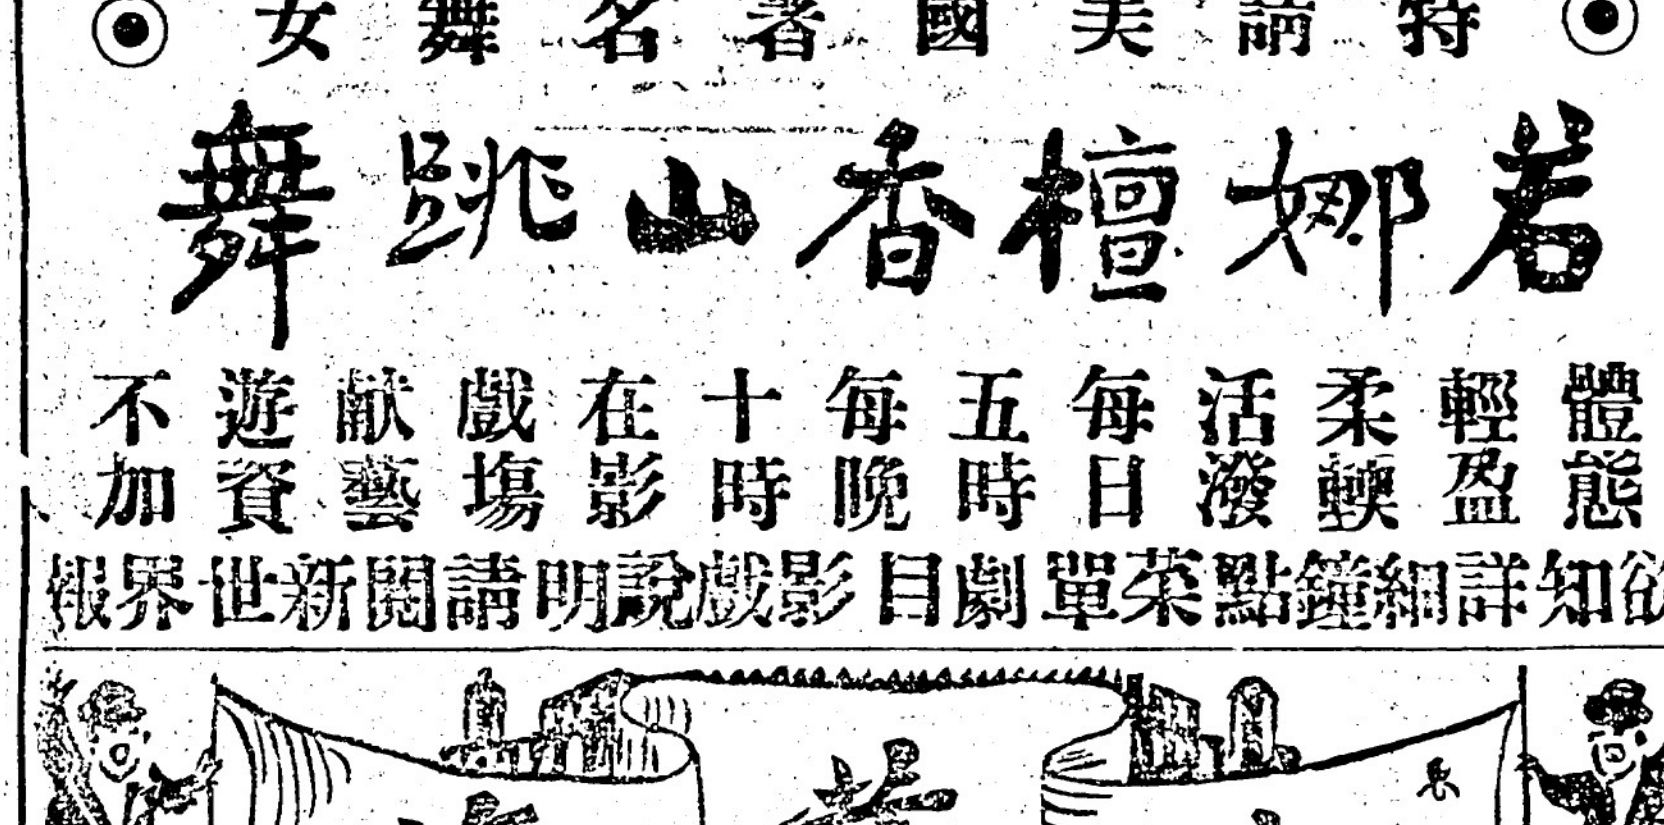 特請美國著名舞女
若娜檀香山跳舞
體態輕盈柔輭活潑每日五時每晚十時在影戲塲献藝遊資不加
欲知詳細鐘點菜單劇目影戲說明請閱新世界報